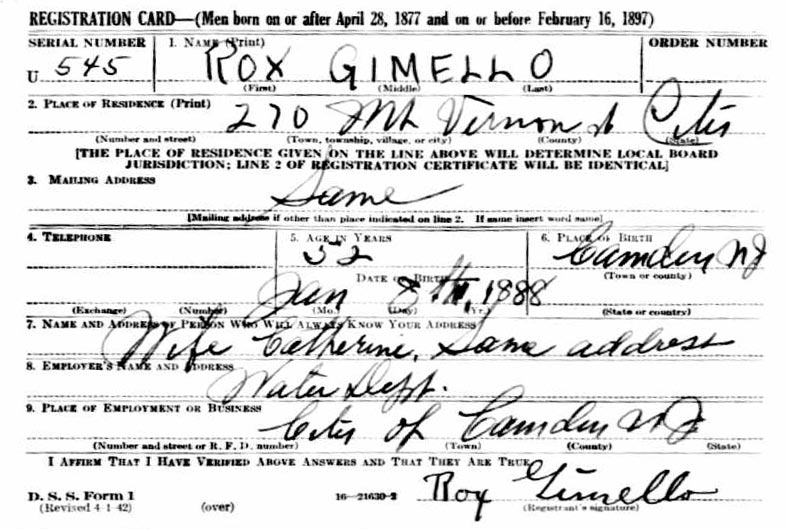 REGISTRATION CARD—(Men born on or after April 28, 1877 and on or before February 16, 1897)
SERIAL NUMBER 1. NAME (Print) ORDER NUMBER
U 545 ROX GIMELLO
(First) (Middle) (Last)
2. PLACE OF RESIDENCE (Print)
270 Mt Vernon st City
(Number and street) (Town, township, village, or city) (County) (State)
[THE PLACE OF RESIDENCE GIVEN ON THE LINE ABOVE WILL DETERMINE LOCAL BOARD
JURISDICTION; LINE 2 OF REGISTRATION CERTIFICATE WILL BE IDENTICAL]
3. MAILING ADDRESS
Same
[Mailing address if other than place indicated on line 2. If same insert word same]
4. TELEPHONE 5. AGE IN YEARS 6. PLACE OF BIRTH
52 Camden NJ
(Town or county)
DATE OF BIRTH
Jan 8th, 1888
(Exchange) (Number) (Mo.) (Day) (Yr.) (State or country)
7. NAME AND ADDRESS OF PERSON WHO WILL ALWAYS KNOW YOUR ADDRESS
Wife Catherine, Same address
8. EMPLOYER'S NAME AND ADDRESS
Water Dept.
9. PLACE OF EMPLOYMENT OR BUSINESS
City of Camden NJ
(Number and street or R. F. D. number) (Town) (County) (State)
I AFFIRM THAT I HAVE VERIFIED ABOVE ANSWERS AND THAT THEY ARE TRUE.
Rox Gimello
D. S. S. Form 1
(Revised 4-1-42) (over) 16—21630-2 (Registrant's signature)